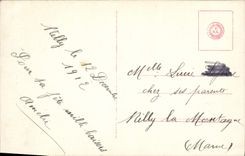 Nilly le 12 Décembre
1912
Pour ta fête mille baisers
Amélie
Melle Lucie
chez ses parents
Nilly la Montagne
(Marne)